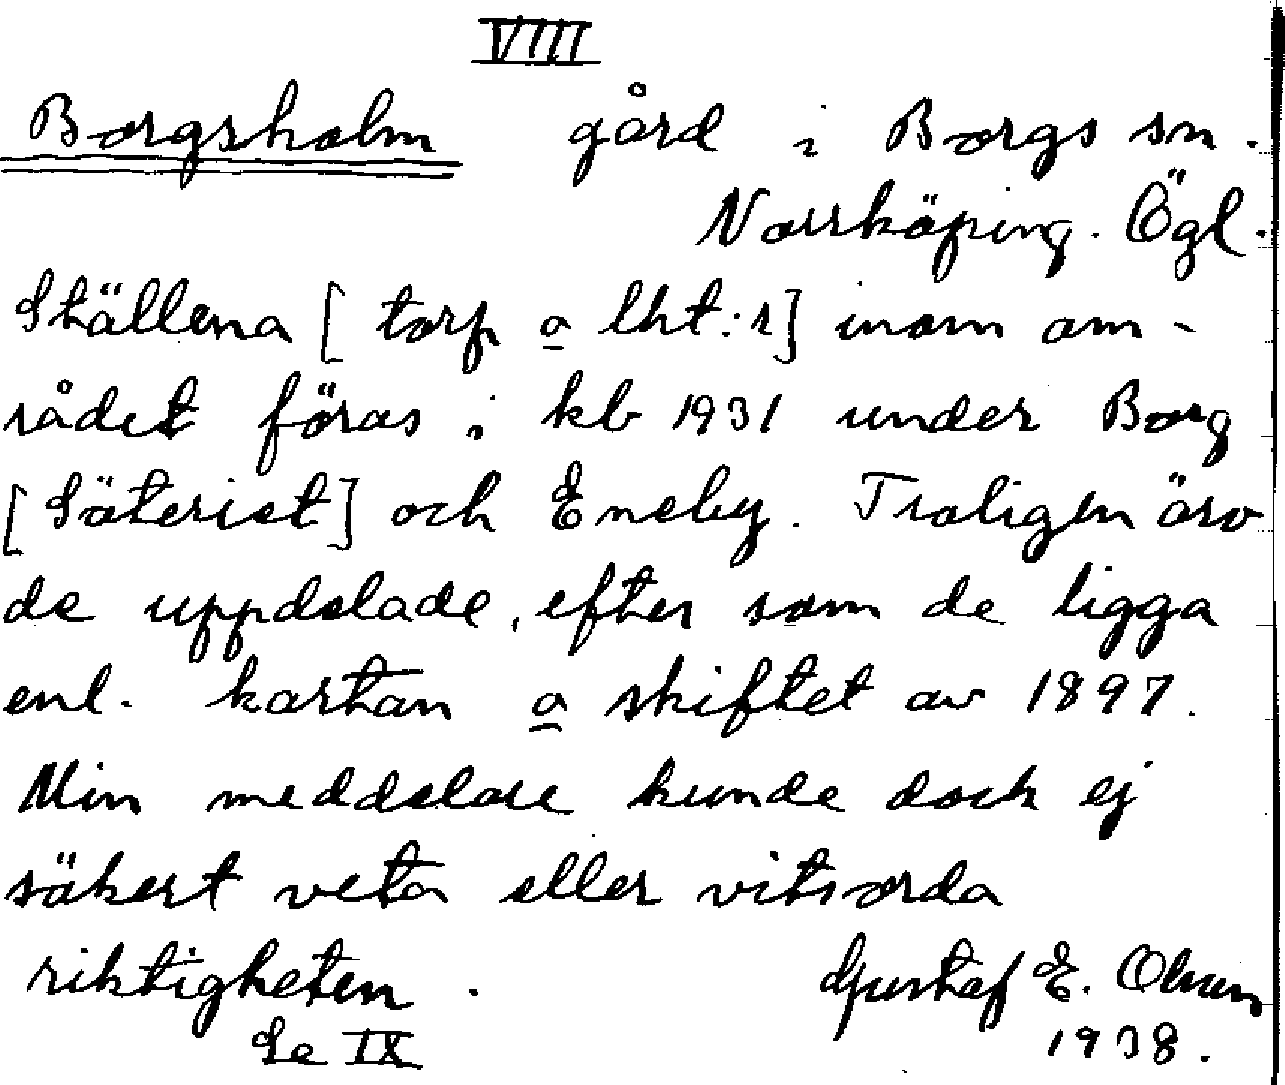 VIII
Borgsholm gård i Borgs sn.
Norrköping. Ögl.
Ställena [torp o lht:r] inom om-
rådet föras i kb 1931 under Borg
[Säteriet] och Eneby. Troligen äro
de uppdelade, efter som de ligga
enl. kartan o skiftet av 1897.
Min meddelare kunde dock ej
säkert veta eller vitsorda
riktigheten.
Gustaf E. Olsson
Se IX
1938.